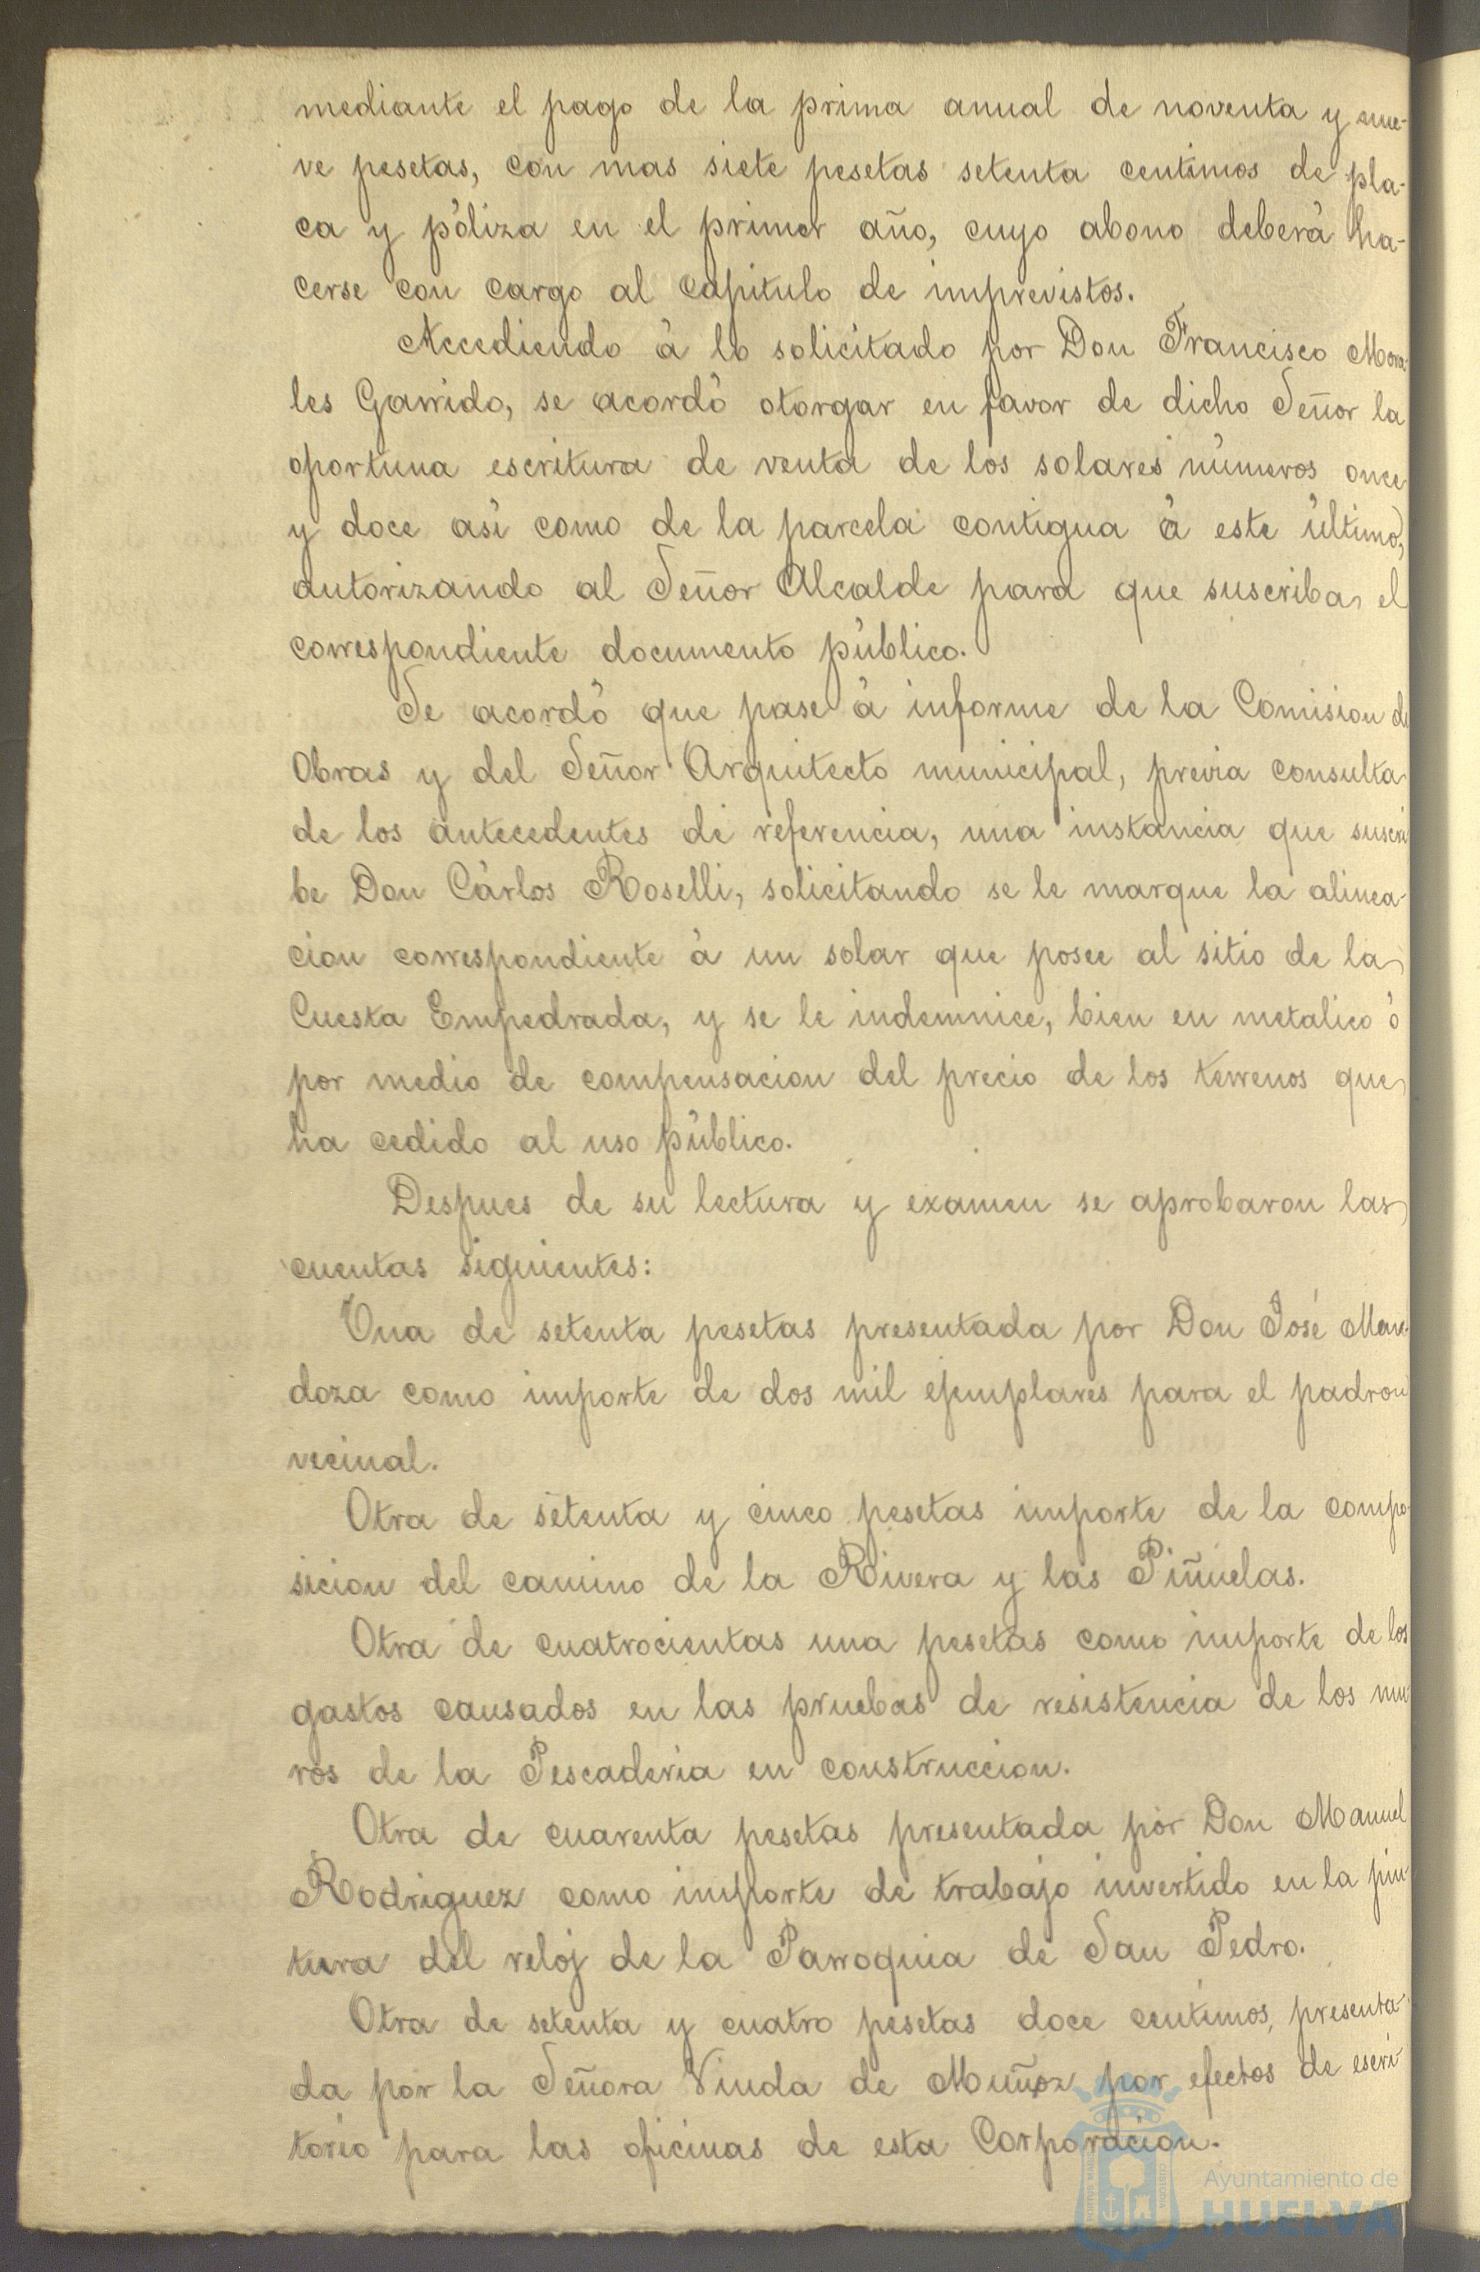 mediante el pago de la prima anual de noventa y nue-
ve pesetas, con mas siete pesetas setenta centimos de pla-
ca y póliza en el primer año, cuyo abono deberá ha-
cerse con cargo al capitulo de imprevistos.
Accediendo á lo solicitado por Don Francisco Mora-
les Garrido, se acordó otorgar en favor de dicho Señor la
oportuna escritura de venta de los solares números once
y doce así como de la parcela contigua á este último,
autorizando al Señor Alcalde para que suscriba el
correspondiente documento público.
Se acordó que pase á informe de la Comision de
Obras y del Señor Arquitecto municipal, previa consulta
de los antecedentes de referencia, una instancia que suscri
be Don Cárlos Roselli, solicitando se le marque la alinea-
cion correspondiente á un solar que posee al sitio de la
Cuesta Empedrada, y se le indemnice, bien en metalico ó
por medio de compensacion del precio de los terrenos que
ha cedido al uso público.
Despues de su lectura y examen se aprobaron las
cuentas siguientes:
Una de setenta pesetas presentada por Don José Men-
doza como importe de dos mil ejemplares para el padron
vecinal.
Otra de setenta y cinco pesetas importe de la compo-
sicion del camino de la Rivera y las Piñuelas.
Otra de cuatrocientas una pesetas como importe de los
gastos causados en las pruebas de resistencia de los mu-
ros de la Pescaderia en construccion.
Otra de cuarenta pesetas presentada por Don Manuel
Rodriguez como importe de trabajo invertido en la pin-
tura del reloj de la Parroquia de San Pedro.
Otra de setenta y cuatro pesetas doce centimos, presenta-
da por la Señora Viuda de Muñoz por efectos de escri-
torio para las oficinas de esta Corporacion.
Ayuntamiento de
HUELVA